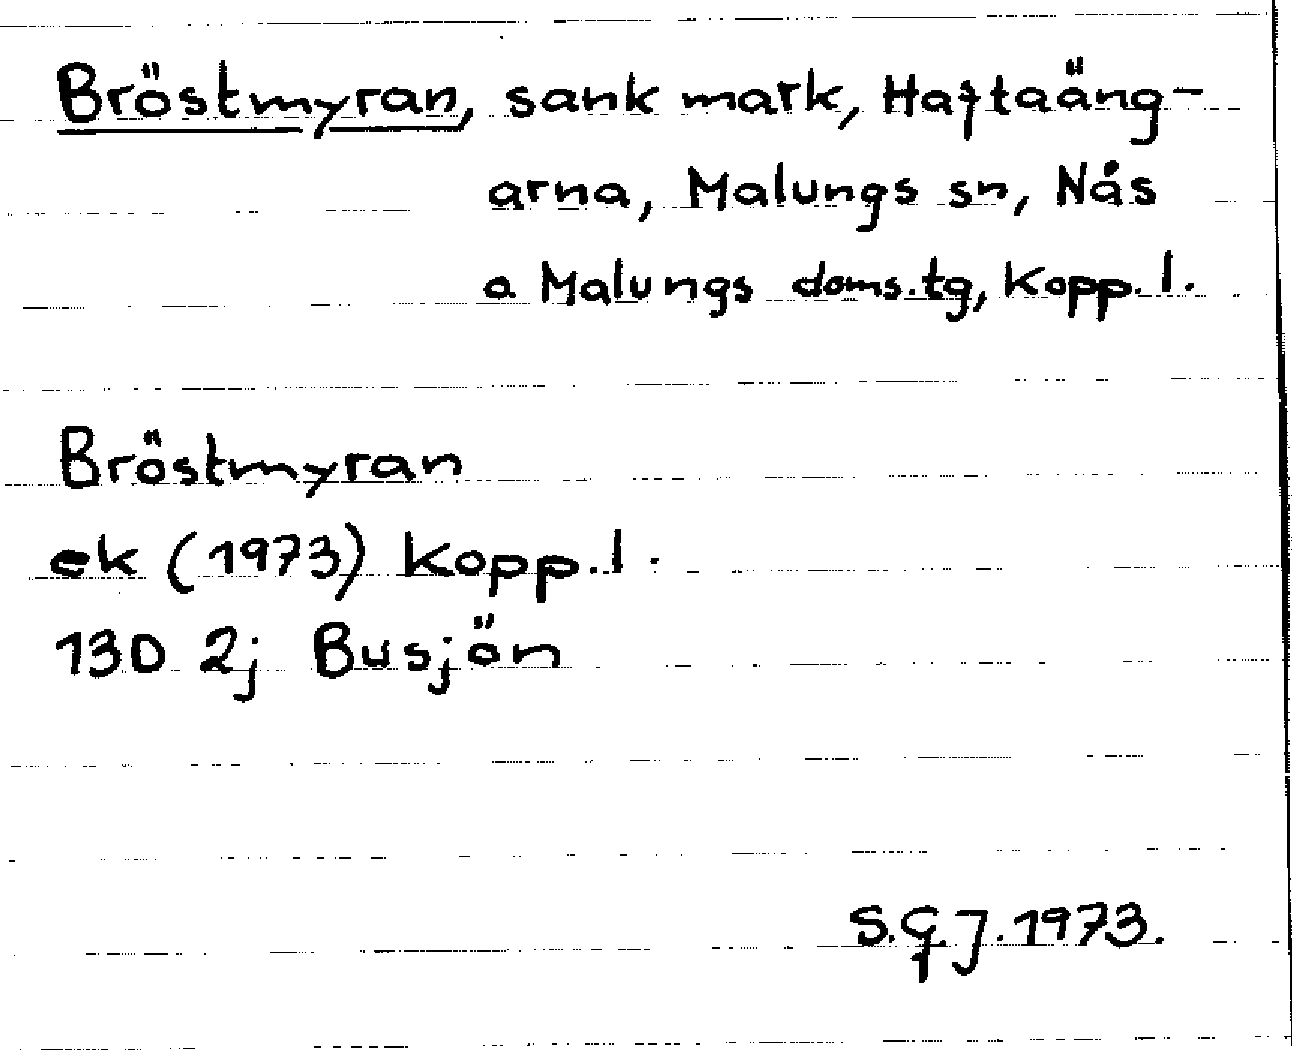 Bröstmyran, sank mark, Haftaäng-
arna, Malungs sn, Nås
o Malungs doms.tg, Kopp. l.
Bröstmyran
ek (1973) Kopp. l.
13D 2j Busjön
S.G.J. 1973.